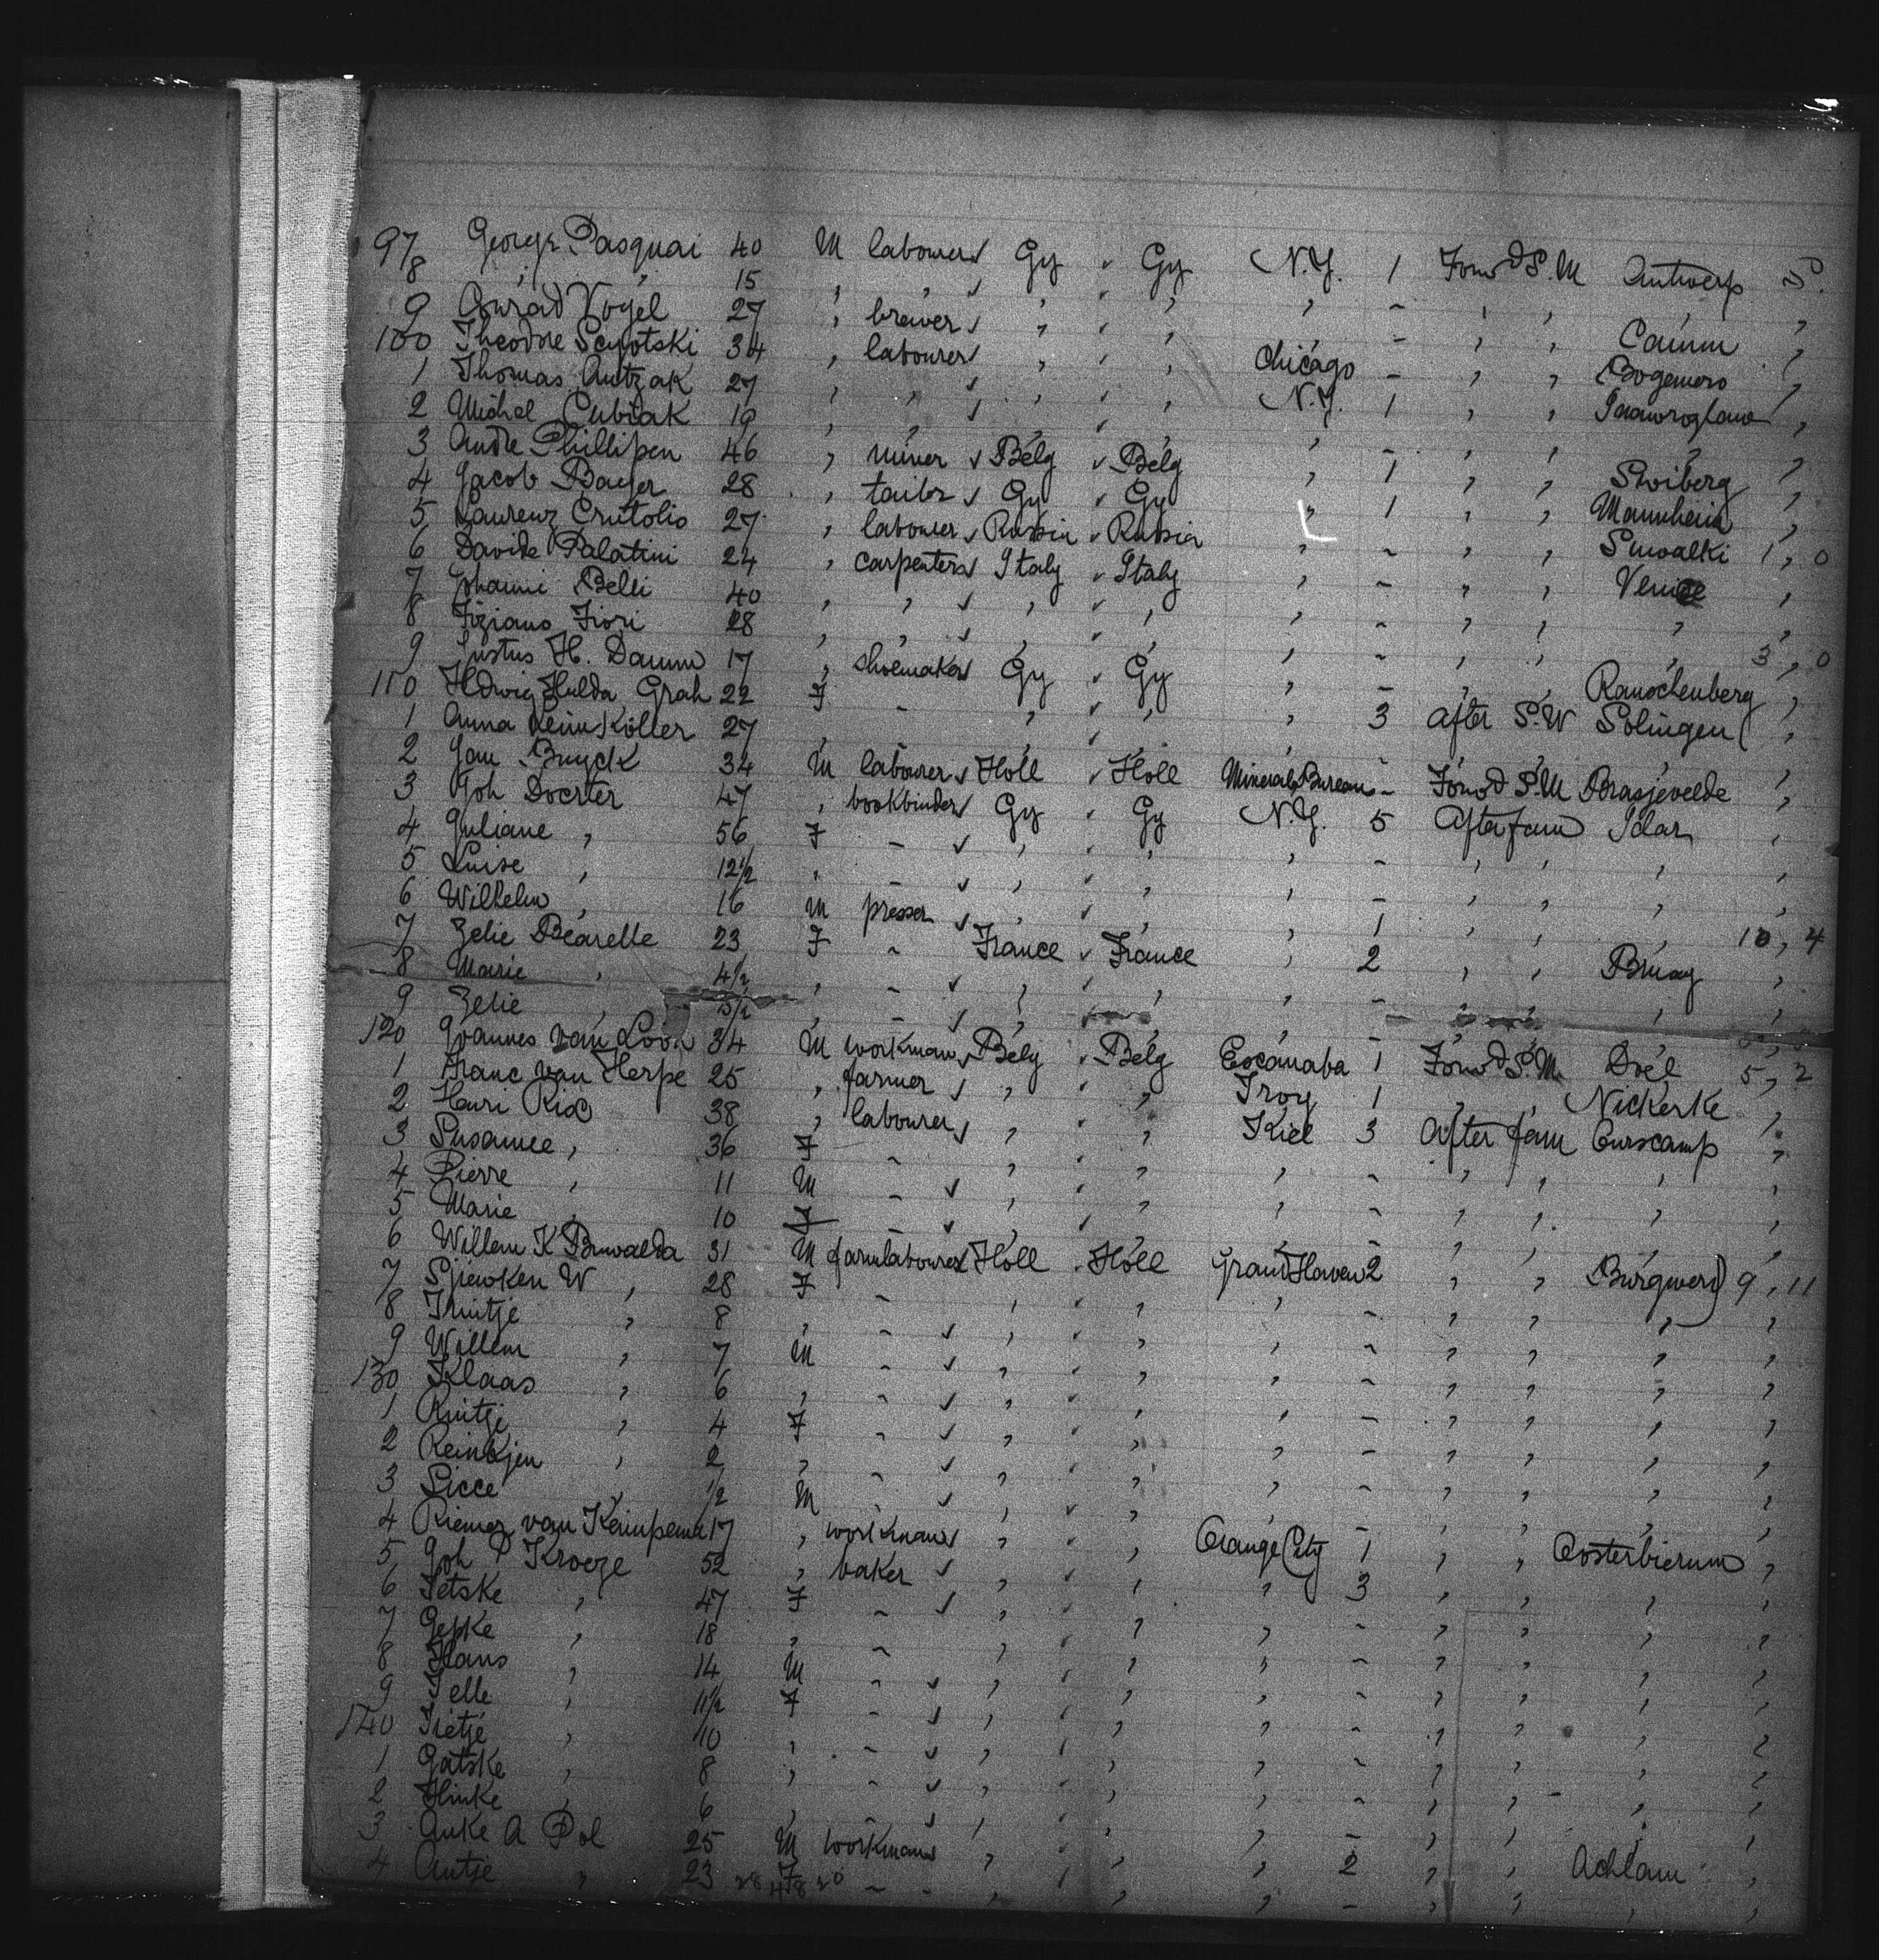 97 George Pasquai 40 M labourer Gy Gy N.Y. 1 Forw d S.M Antwerp
8 " " 15 " " " " " - " " "
9 Conrad Vogel 27 " brewer " " " - " " Camm
100 Theodore 34 " labourer " " Chicago - " " Bogemoro
1 Thomas Antzak 27 " " " " N.Y. 1 " "
2 Michel Cubiak 19 " " " " " - " " "
3 Andre Phillipen 46 " miner Belg Belg " 1 " " Stoiberg
4 Jacob Bayer 28 " tailor Gy Gy " 1 " " Mannheim
5 Laurenz Crutolis 27 " labourer Russia Russia " - " " Suwalki 1, 0
6 Davide Palatini 24 " carpenter Italy Italy " - " " Venice
7 Belli 40 " " " " " - " " "
8 Tiziano Fiori 28 " " " " " - " " " 3, 0
9 Justus H. Damm 17 " shoemaker Gy Gy " - " " Rauschenberg
110 Hedwig Hulda Grah 22 F - " " " 3 After S.W Solingen
1 Anna Köller 27 " - " " " - " " "
2 Jan Buyck 34 M labourer Holl Holl Mineral Bureau - Forw d S.M
3 Joh Doerter 47 " bookbinder Gy Gy N.Y. 5 After fam Idar
4 Juliane " 56 F - " " " - " " "
5 Luise " 12½ " - " " " - " " "
6 Wilhelm " 16 M presser " " " 1 " " " 10, 4
7 Zelie Bearelle 23 F - France France " 2 " " Bruay
8 Marie " 4½ " - " " " - " " "
9 Zelie " " - " " " - " " "
120 Joannes van Loon 34 M workman Belg Belg Escanaba 1 Forw d S.M. Doel 5, 2
1 Franc van Herpe 25 " farmer " " Troy 1 " " Nickerke
2 Henri Rix 38 " labourer " " Kiel 3 After fam Ourscamp
3 Susanne " 36 F - " " " - " " "
4 Pierre " 11 M - " " " - " " "
5 Marie " 10 F - " " " - " " "
6 Willem K Bruwalda 31 M farmlabourer Holl Holl Grand Haven 2 " " Burgwerd 9, 11
7 W " 28 F - " " " - " " "
8 Trintje " 8 " - " " " - " " "
9 Willem " 7 M - " " " - " " "
130 Klaas " 6 " - " " " - " " "
1 Rintje " 4 F - " " " - " " "
2 " 2 " - " " " - " " "
3 Sicce " ½ M - " " " - " " "
4 Riemer van Kempema 17 " workman " " Orange City 1 " " Oosterbierum
5 Joh P Kroeze 52 " baker " " " 3 " " "
6 Tetske " 47 F - " " " - " " "
7 Gepke " 18 " - " " " - " " "
8 Hans " 14 M - " " " - " " "
9 Jelle " 11½ F - " " " - " " "
140 Trietje " 10 " - " " " - " " "
1 Gatske " 8 " - " " " - " " "
2 Hinke " 6 " - " " " - " " "
3 Auke A Pol 25 M workman " " " 2 " " Achlum
4 Antje " 23 F - " " " - " " "